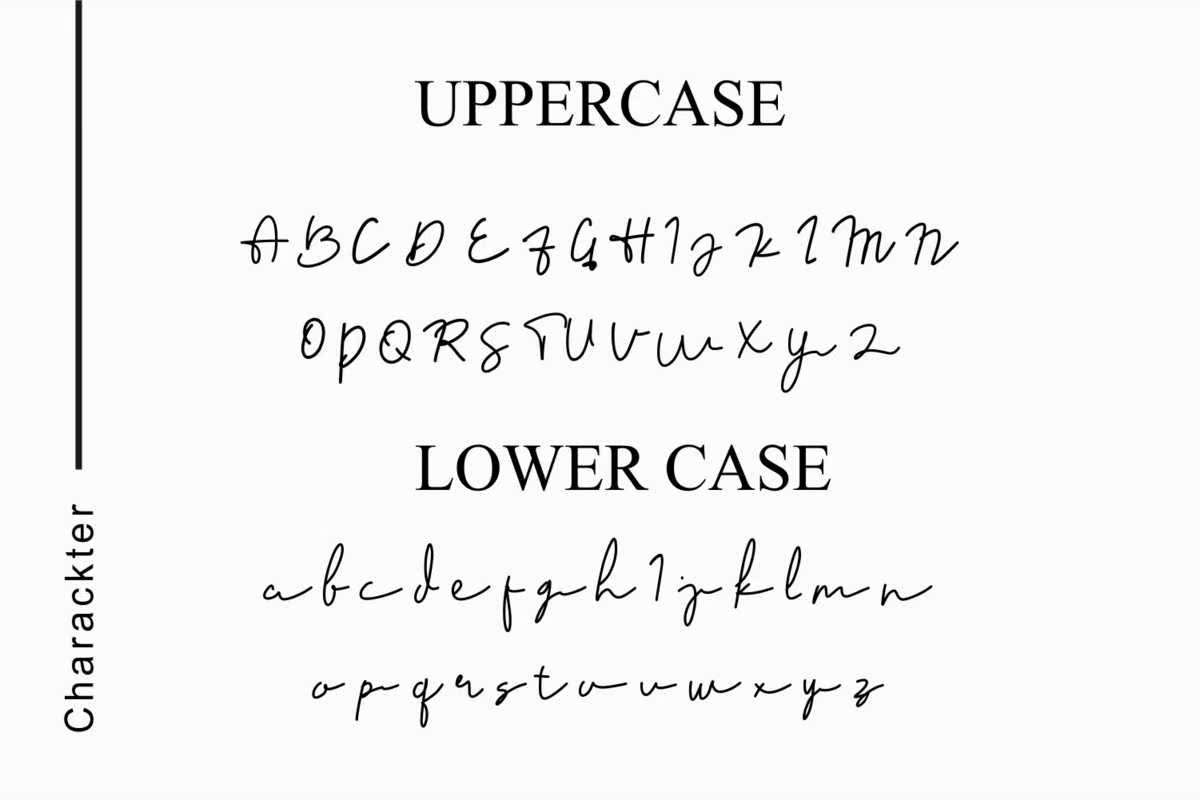 UPPERCASE
A B C D E F G H I J K L M N
O P Q R S T U V W X Y Z
LOWER CASE
a b c d e f g h I j k l m n
o p q r s t u v w x y z
Charackter